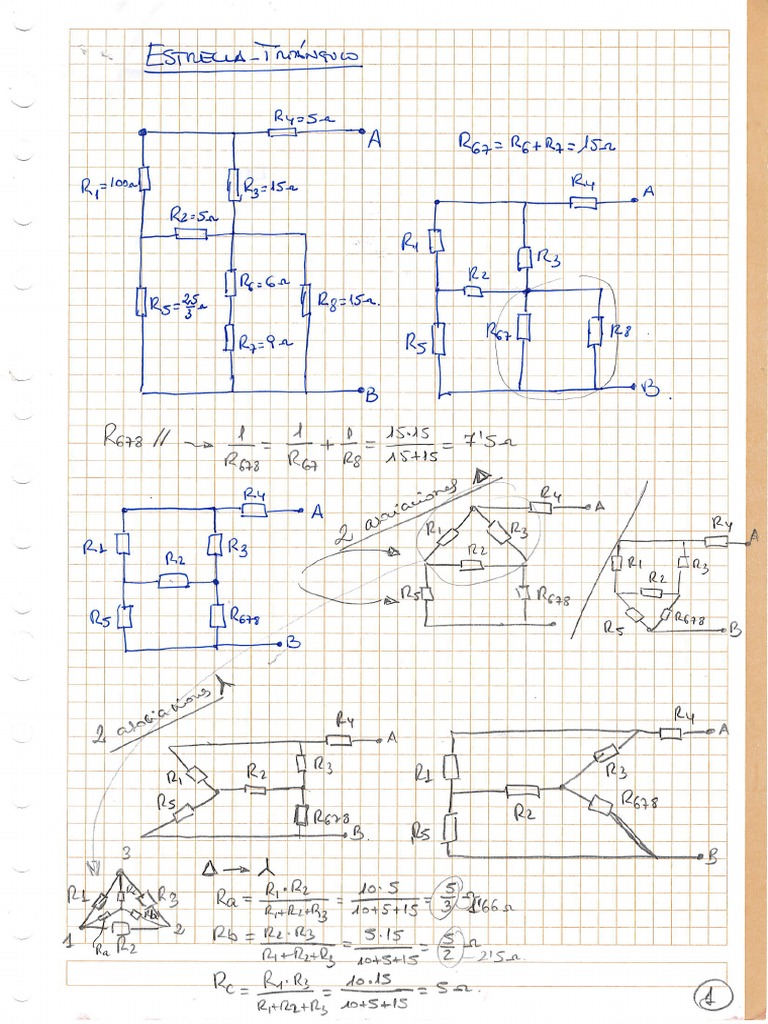 ESTRELLA-TRIÁNGULO
R4=5Ω
A
R67=R6+R7=15Ω
R1=10Ω
R3=15Ω
R2=5Ω
R5=25/3Ω
R6=6Ω
R8=15Ω.
R7=9Ω
B
R4
A
R1
R3
R2
R5
R67
R8
B
R678 // ⇝ 1/R678 = 1/R67 + 1/R8 = 15·15/15+15 = 7'5Ω
R4
A
R1
R3
R2
R5
R678
B
2 asociaciones Δ
R4
A
R1
R3
R2
R5
R678
R4
A
R1
R3
R2
R5
R678
B
2 asociaciones ⅄
R4
A
R1
R3
R2
R5
R678
B
R4
A
R1
R3
R2
R5
R678
B
3
R1
R3
1
2
Ra
R2
Δ → ⅄
Ra = R1·R2/R1+R2+R3 = 10·5/10+5+15 = 5/3 Ω 1'66Ω
Rb = R2·R3/R1+R2+R3 = 5·15/10+5+15 = 5/2 Ω 2'5Ω
Rc = R1·R3/R1+R2+R3 = 10·15/10+5+15 = 5Ω.
1